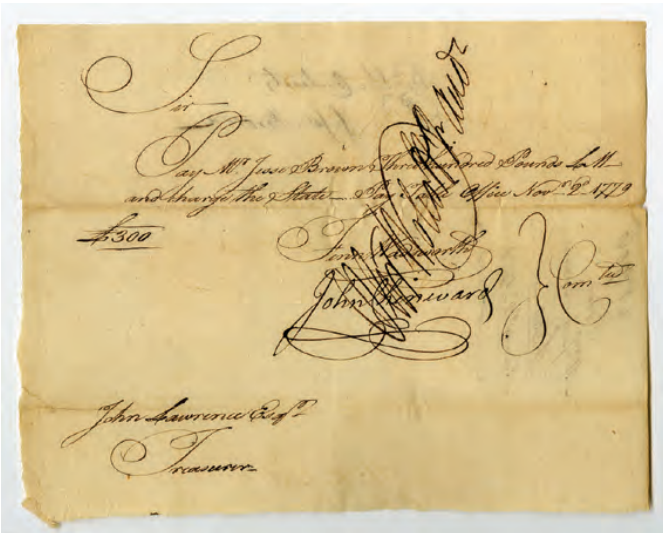 Sir
Pay Mr Jesse Brown Three hundred Pounds L M
and charge the State Pay Table Office Novr 2d 1779
£300
Fenn Wadsworth
John Chenward } Comtee
John Lawrence Esqr
Treasurer